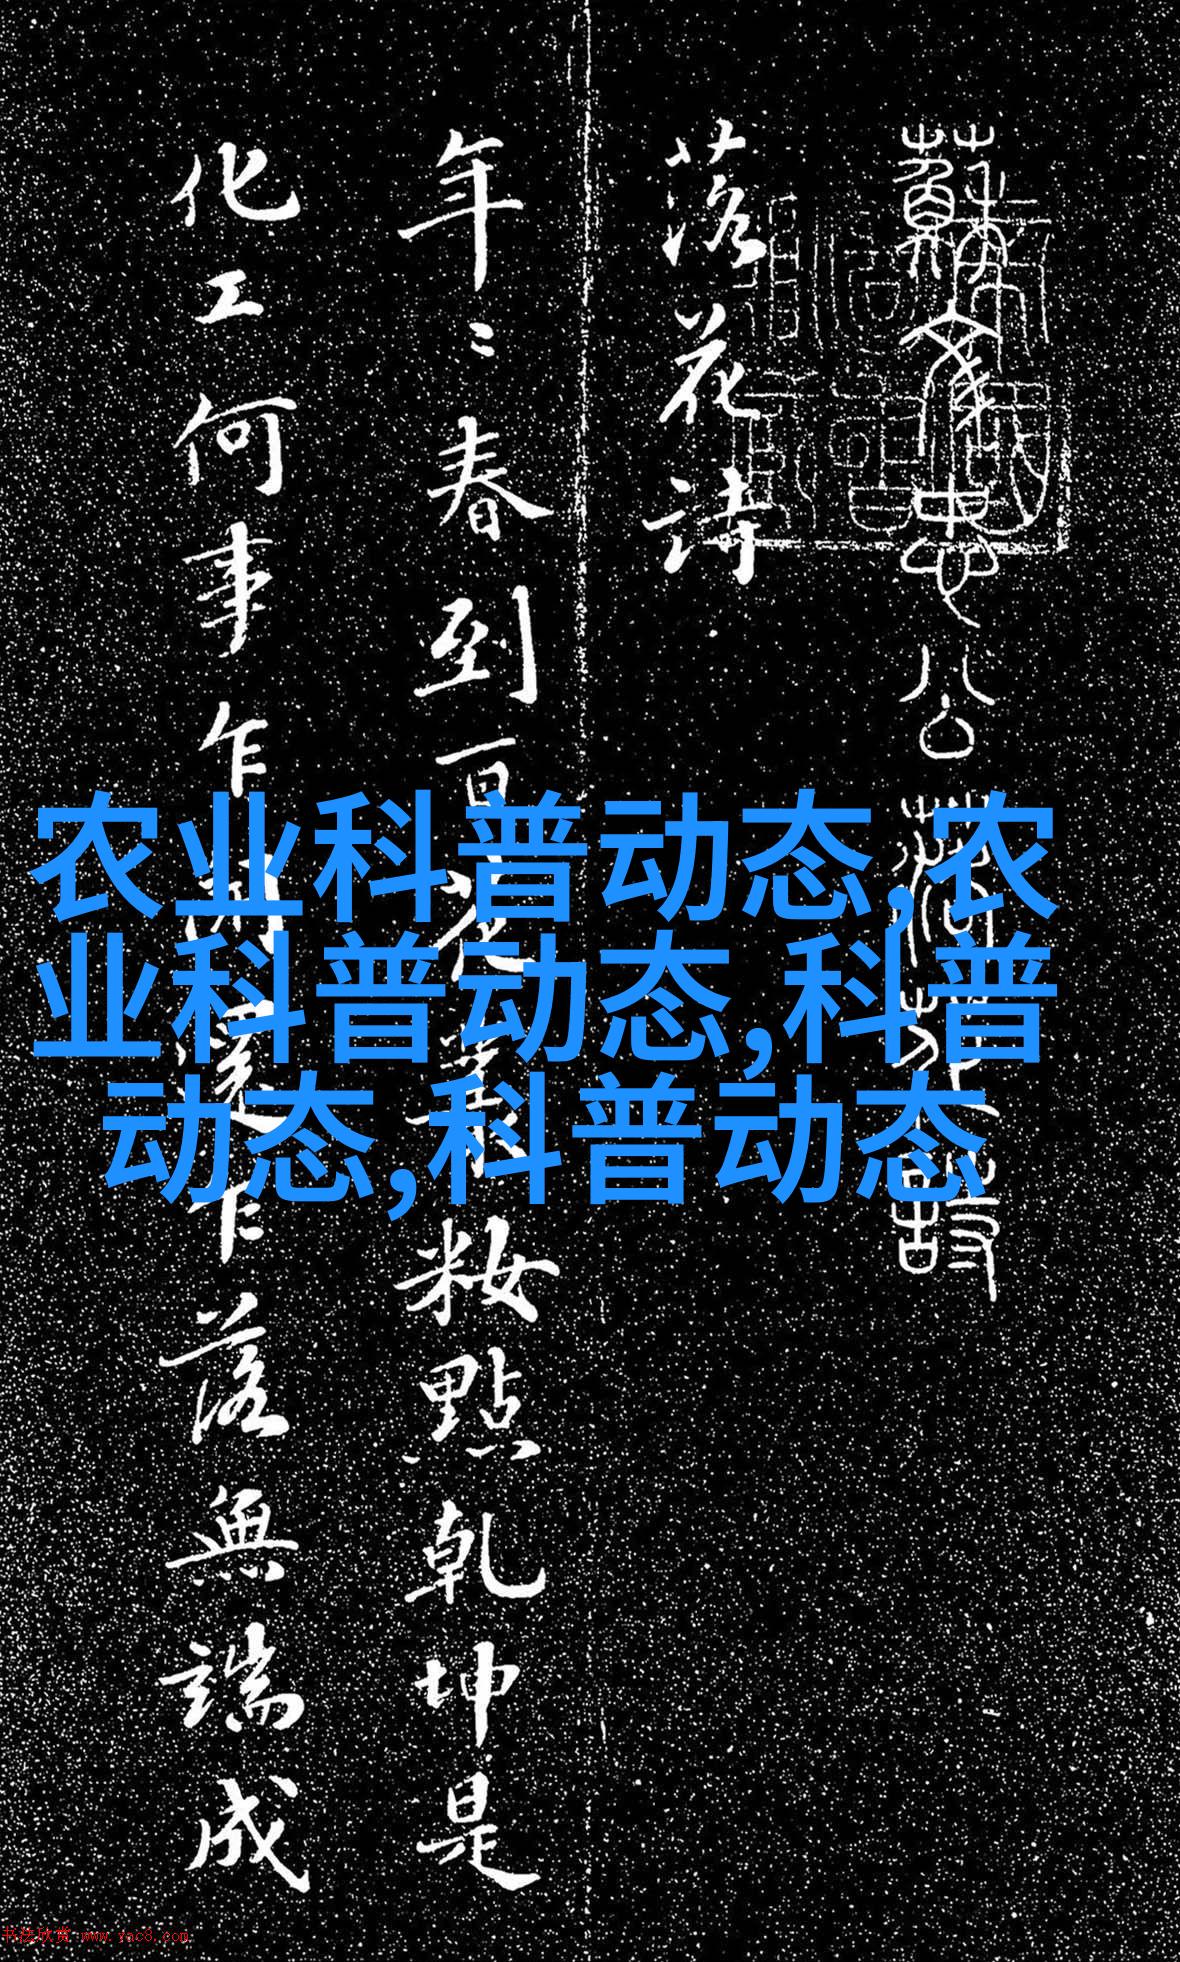 蘇文忠公落花詩
落花詩
年〻春到百花叢粧點乾坤是
化工何事乍開還乍落無端成
农业科普动态,农
业科普动态,科普
动态,科普动态
书法欣赏 www.yac8.com